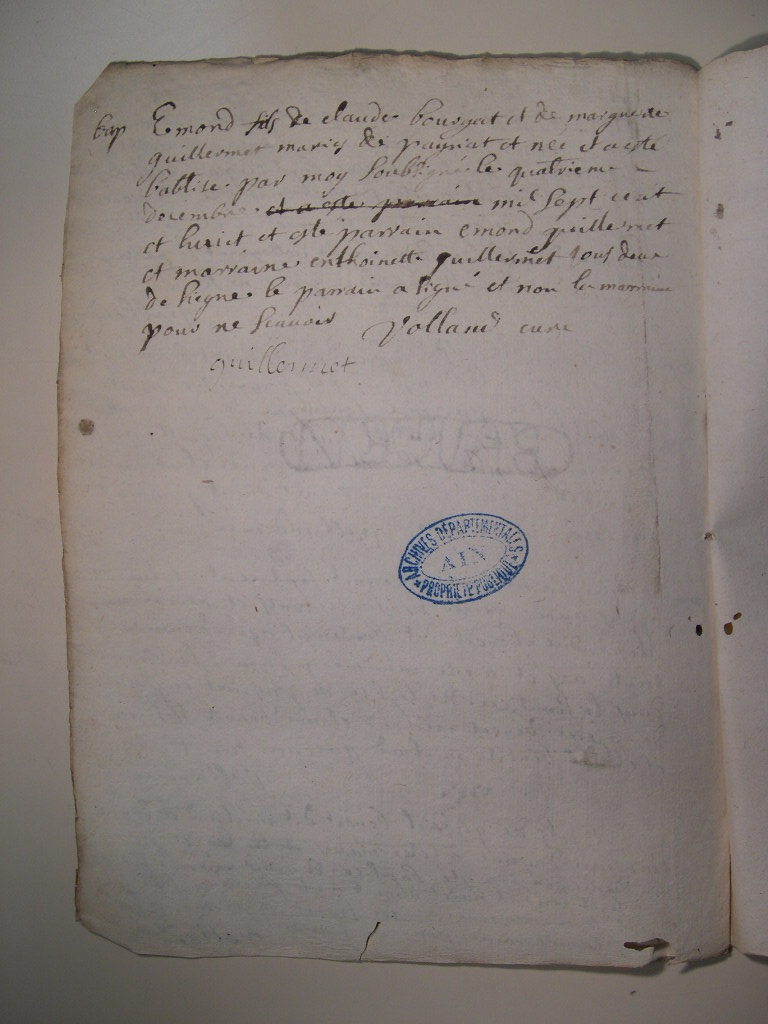 bap Emond fils de claude bourgat et de marguerite
guillermet maries de payriat et nee et a este
babtise par moy soubsigné le quatrieme
decembre et a este parrain mil sept cent
et huict et este parrain emond guillermet
et marraine enthoinette guillermet tous deux
de siegne le parrain a signé et non la marraine
pour ne scavoir Volland curé
guillermet
ARCHIVES DÉPARTEMENTALES
AIN
PROPRIÉTÉ PUBLIQUE